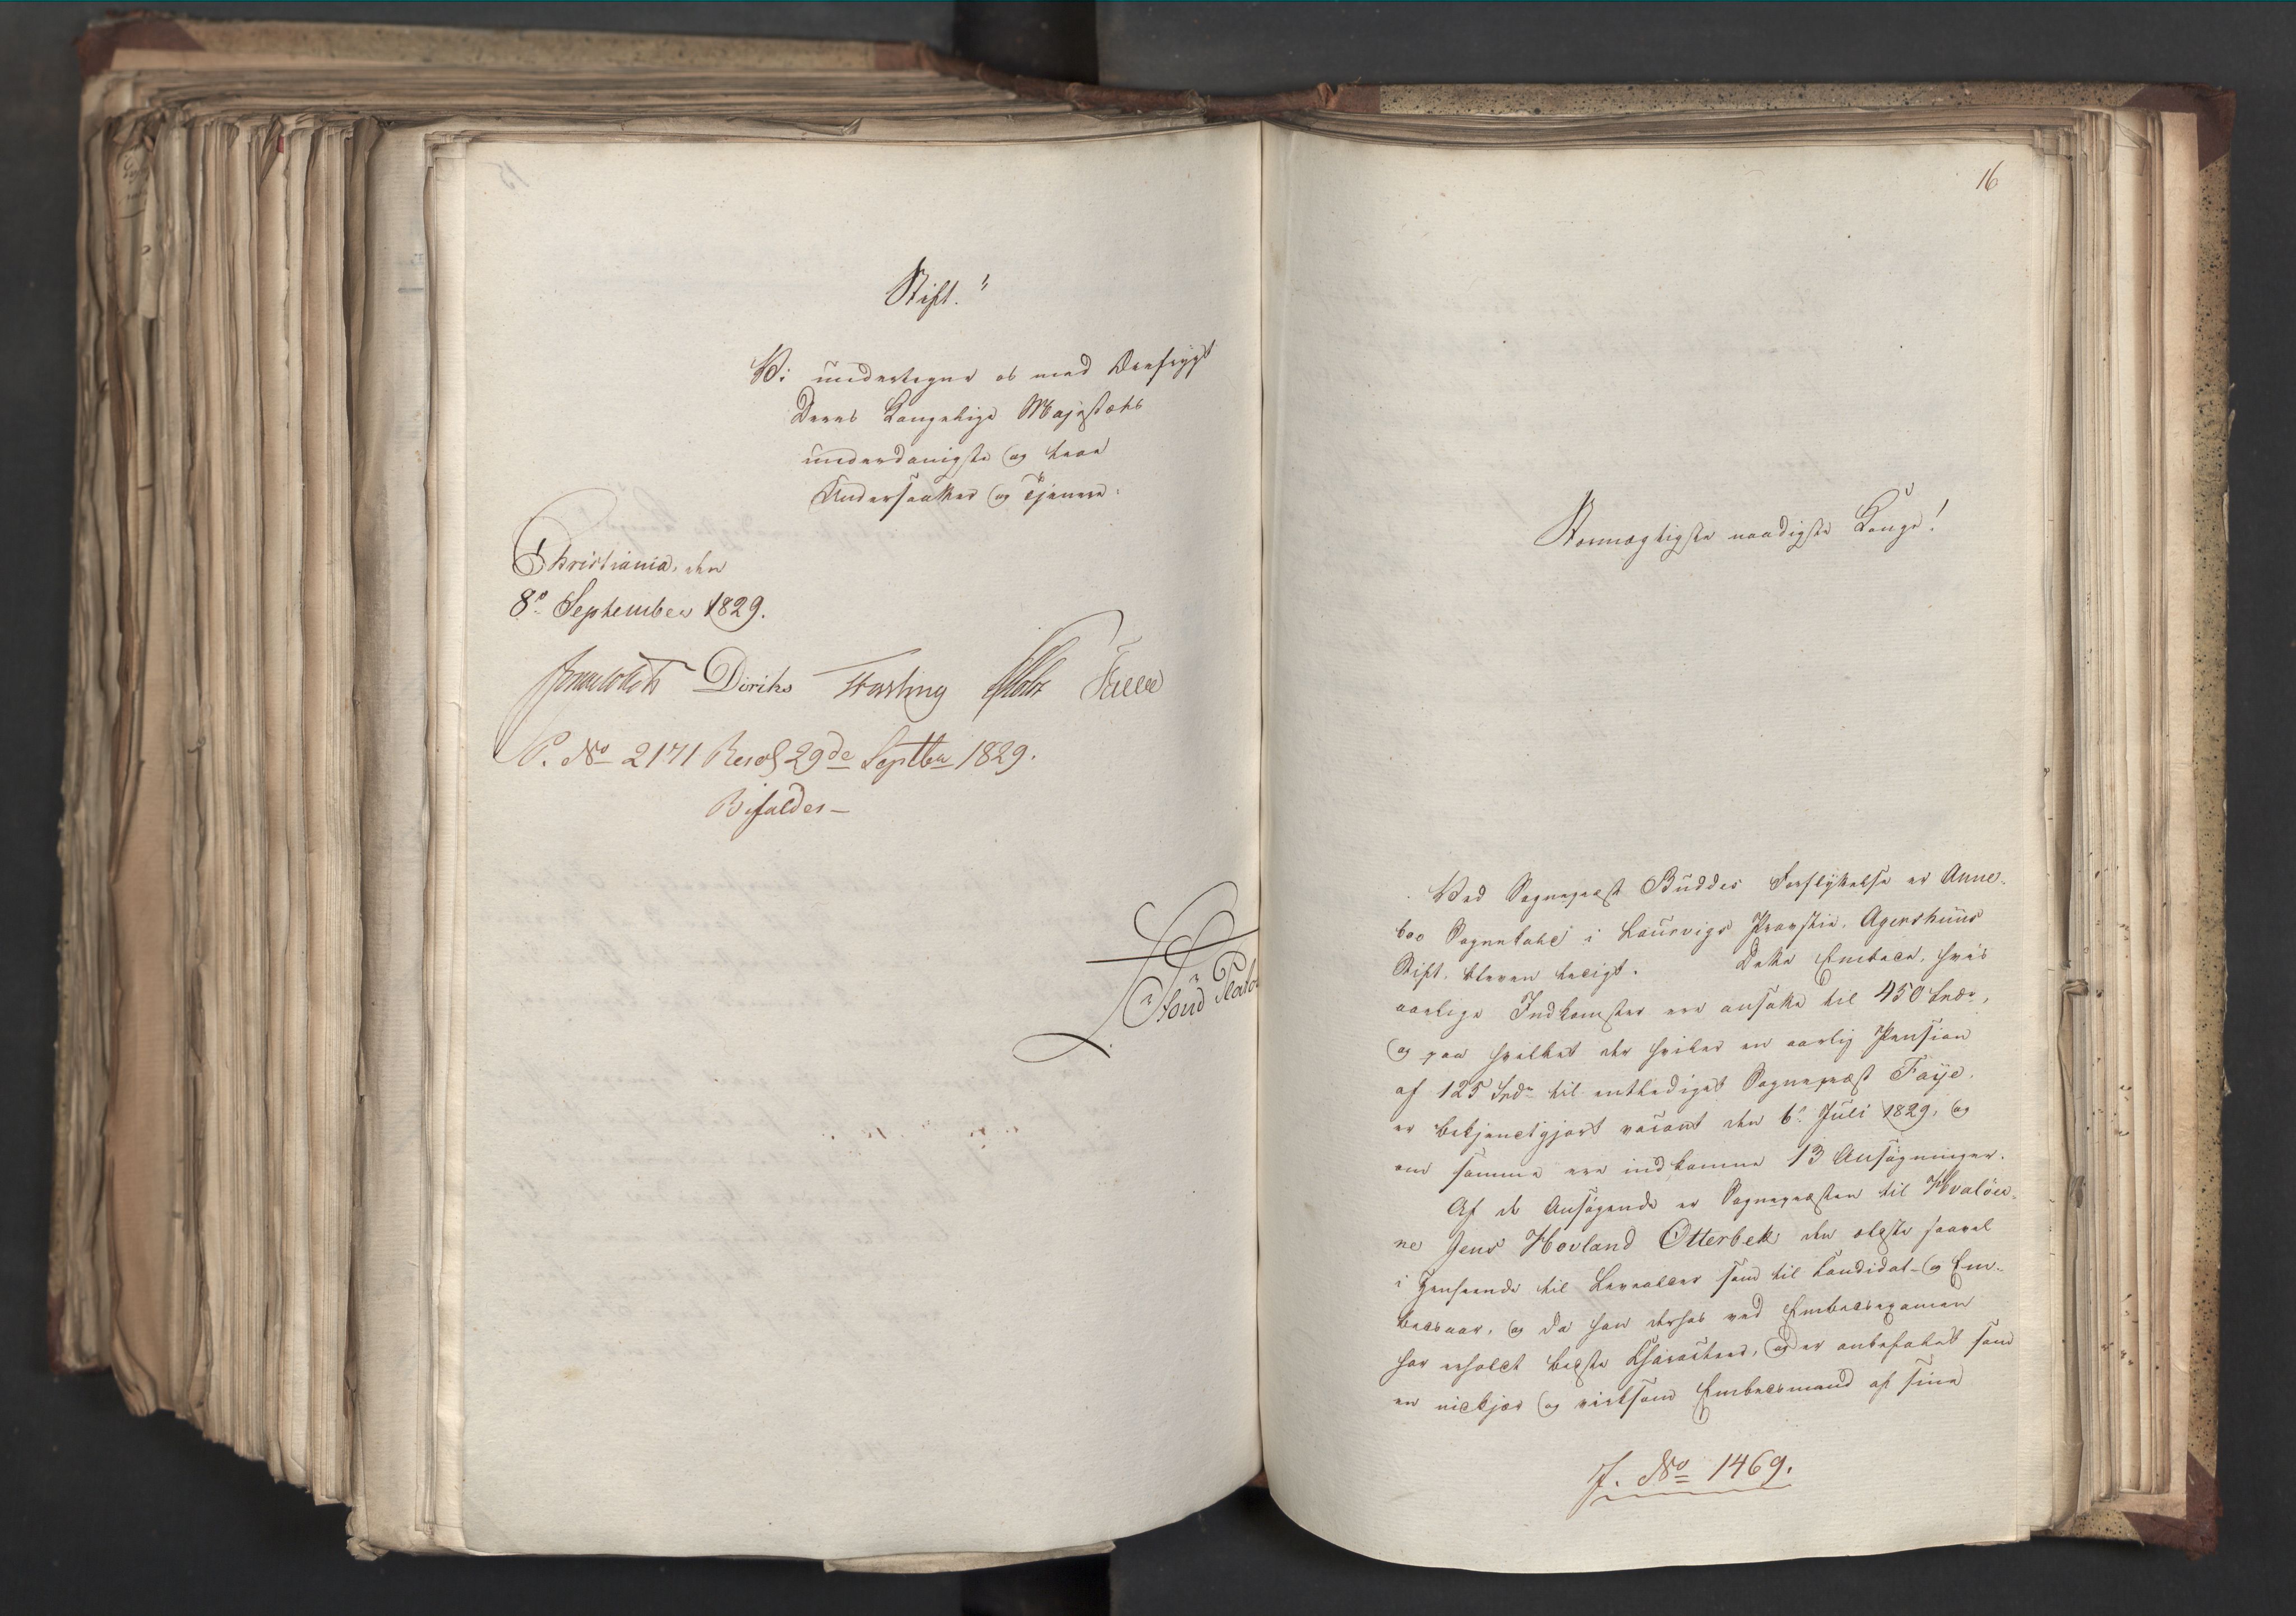 Stift."
Vi undertegne os med Ærefrygt
Deres Kongelige Majestæts
underdanigste og troe
Undersaatter og Tjenere.
Christiania, den
8de September 1829.
Diriks Fasting Holst
P. No 2171 Resol 29de Septbr 1829.
Bifaldes—
16
Stormægtigste naadigste Konge!
Ved Sognepræst Buddes Forflyttelse er Anne-
boe Sognekald i Laurvigs Provstie, Agershuus
Stift, bleven ledigt. Dette Embede, hvis
aarlige Indkomster ere ansatte til 450 Spdr,
og paa hvilket der hviler en aarlig Pension
af 125 Spdr til entlediget Sognepræst Faye,
er bekjendtgjort vacant den 6te Juli 1829, og
om samme ere indkomne 13 Ansøgninger.
Af de Ansøgende er Sognepræsten til Hvaløer-
ne Jens Hovland Otterbek den ældste saavel
i Henseende til Levealder som til Candidat- og Em-
bedsaar, og da han derhos ved Embedsexamen
har erholdt bedste Character, og er anbefalet som
en nidkjær og virksom Embedsmand af sine
J. No 1469.